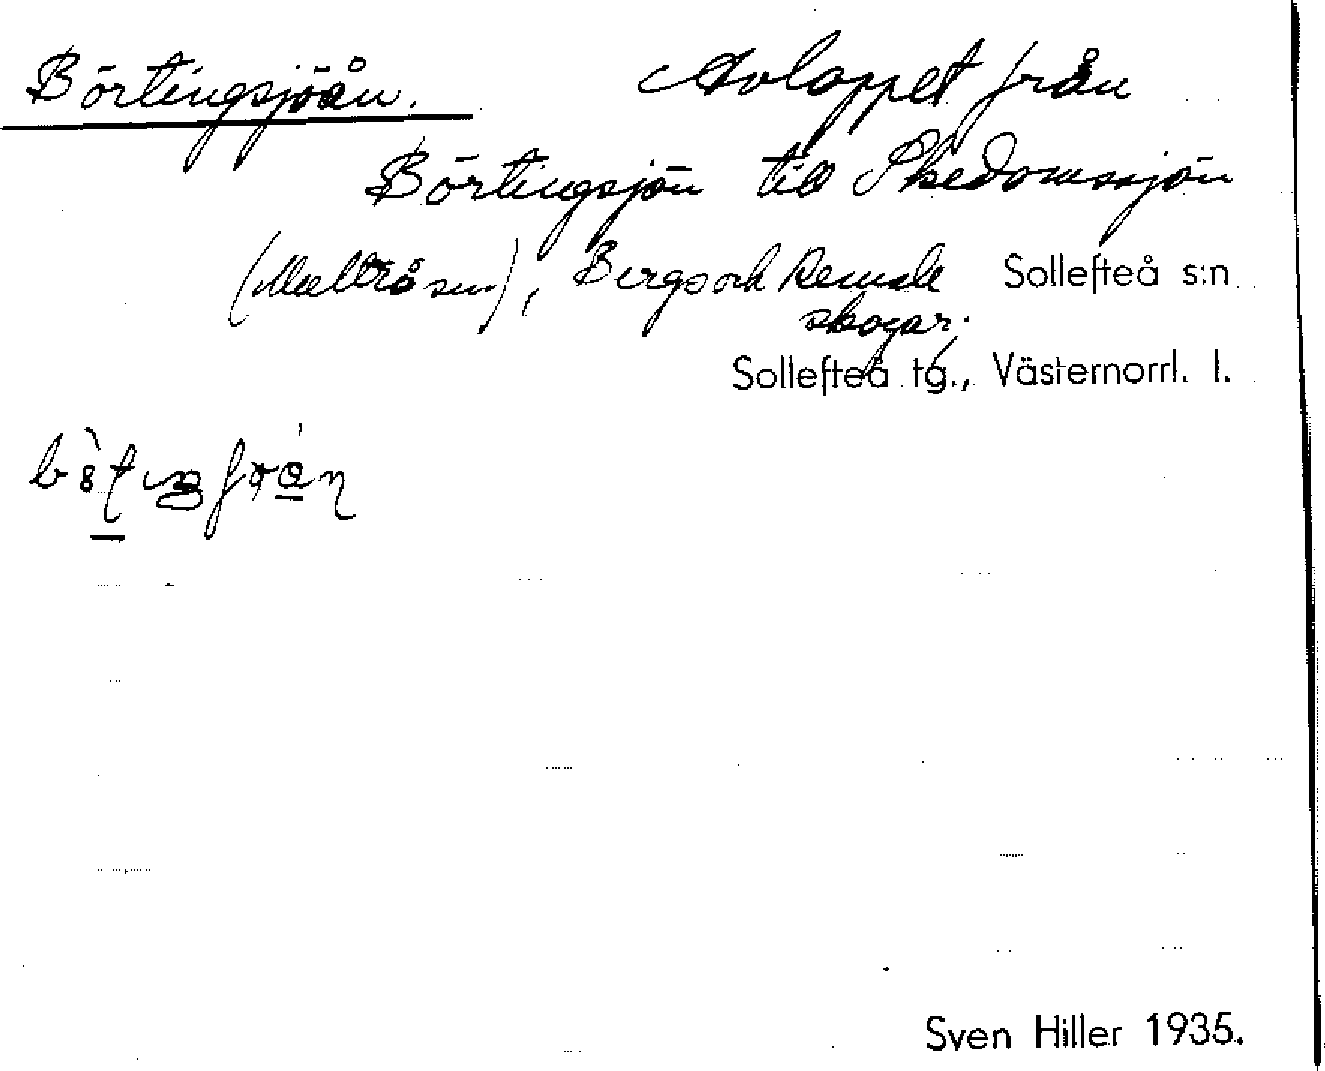 Börtingsjöån. Avloppet från
Börtingsjön till Skedomssjön
(Mellråsen), Bergs och Remsle Sollefteå s:n
skogar.
Sollefteå tg., Västernorrl. l.
Sven Hiller 1935.